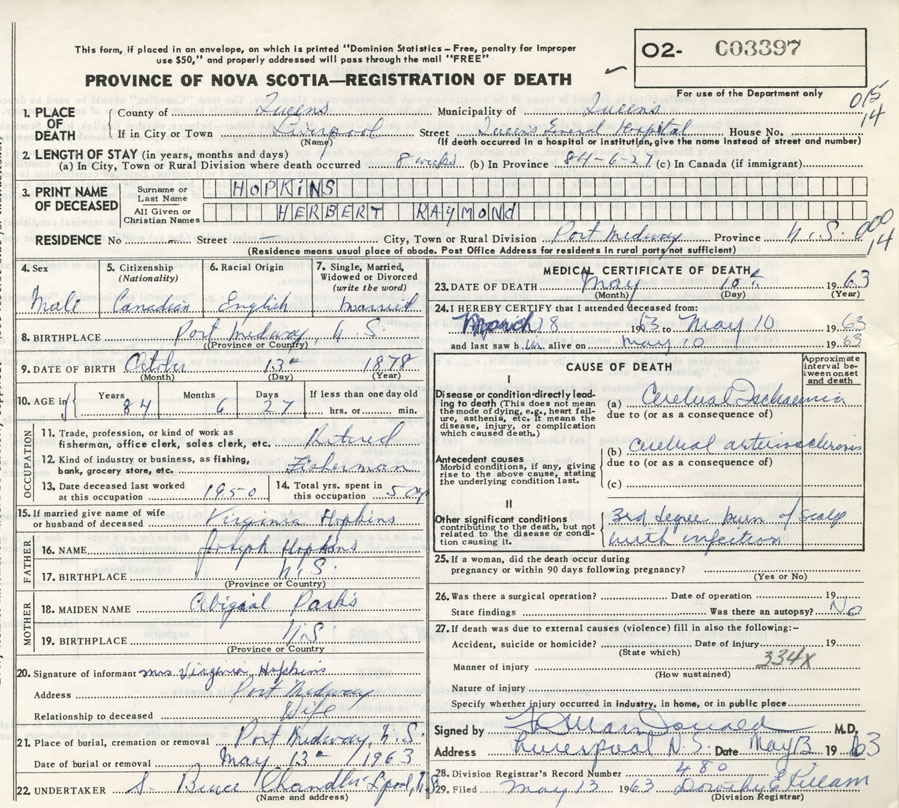 This form, if placed in an envelope, on which is printed "Dominion Statistics—Free, penalty for improper
use $50," and properly addressed will pass through the mail "FREE"
O2- C03397
PROVINCE OF NOVA SCOTIA—REGISTRATION OF DEATH
For use of the Department only
015
14
1. PLACE OF DEATH
County of Queens Municipality of Queens
If in City or Town Liverpool Street Queens General Hospital House No.
(Name) (If death occurred in a hospital or institution, give the name instead of street and number)
2. LENGTH OF STAY (in years, months and days)
(a) In City, Town or Rural Division where death occurred 8 weeks (b) In Province 84-6-27 (c) In Canada (if immigrant)
3. PRINT NAME OF DECEASED
Surname or Last Name HOPKINS
All Given or Christian Names HERBERT RAYMOND
RESIDENCE No — Street — City, Town or Rural Division Port Medway Province N.S.
000
14
(Residence means usual place of abode. Post Office Address for residents in rural parts not sufficient)
4. Sex 5. Citizenship (Nationality) 6. Racial Origin 7. Single, Married, Widowed or Divorced (write the word)
Male Canadian English married
8. BIRTHPLACE Port Medway, N.S.
(Province or Country)
9. DATE OF BIRTH October 13th 1878
(Month) (Day) (Year)
10. AGE in Years Months Days If less than one day old
84 6 27 hrs. or min.
OCCUPATION
11. Trade, profession, or kind of work as
fisherman, office clerk, sales clerk, etc. Retired
12. Kind of industry or business, as fishing,
bank, grocery store, etc. Fisherman
13. Date deceased last worked
at this occupation 1950
14. Total yrs. spent in
this occupation 50
15. If married give name of wife
or husband of deceased Virginia Hopkins
FATHER
16. NAME Joseph Hopkins
17. BIRTHPLACE N.S.
(Province or Country)
MOTHER
18. MAIDEN NAME Abigail Parks
19. BIRTHPLACE N.S
(Province or Country)
20. Signature of informant Mrs Virginia Hopkins
Address Port Medway
Relationship to deceased Wife
21. Place of burial, cremation or removal Port Medway, N.S.
Date of burial or removal May 13th 1963
22. UNDERTAKER S. Bruce Chandler L'pool, N.S.
(Name and address)
MEDICAL CERTIFICATE OF DEATH
23. DATE OF DEATH May 10th 1963
(Month) (Day) (Year)
24. I HEREBY CERTIFY that I attended deceased from:
March 18 1963 to May 10 1963
and last saw him alive on May 10 1963
CAUSE OF DEATH
Approximate interval between onset and death
I
Disease or condition directly leading
to death (This does not mean
the mode of dying, e.g., heart failure,
asthenia, etc. It means the
disease, injury, or complication
which caused death.)
(a) Cerebral Ischaemia
due to (or as a consequence of)
Antecedent causes
Morbid conditions, if any, giving
rise to the above cause, stating
the underlying condition last.
(b) Cerebral arteriosclerosis
due to (or as a consequence of)
(c)
II
Other significant conditions
contributing to the death, but not
related to the disease or condition
causing it.
3rd degree burn of scalp
with infection
25. If a woman, did the death occur during
pregnancy or within 90 days following pregnancy?
(Yes or No)
26. Was there a surgical operation? Date of operation 19
State findings Was there an autopsy? No
27. If death was due to external causes (violence) fill in also the following:—
Accident, suicide or homicide? Date of injury 19
(State which)
334X
Manner of injury
(How sustained)
Nature of injury
Specify whether injury occurred in industry, in home, or in public place
Signed by M.D.
Address Liverpool N.S. Date May 13 1963
28. Division Registrar's Record Number 480
29. Filed May 13 1963 Dorothy E Killam
(Division Registrar)